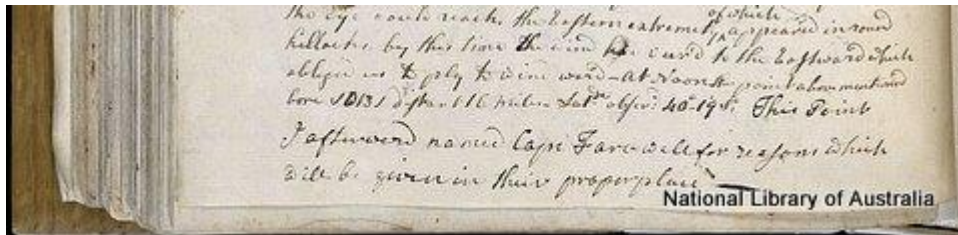 the Eye could reach, the Eastern extremety of which appear'd in round
hillocks, by this time the wind had veer'd to the Eastward which
obliged us to ply to wind ward - at Noon the point above mentioned
bore distant 16 Miles Latde obserd 40°19' S. This Point
I afterward named Cape Farewell for reasons which
will be given in their proper place
National Library of Australia